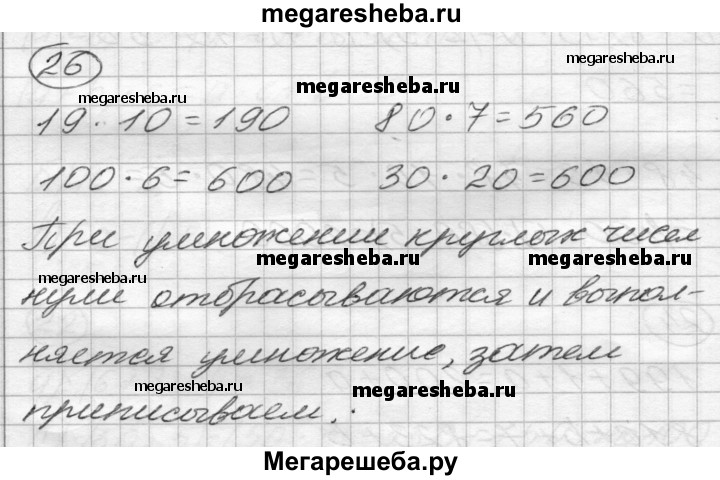 megaresheba.ru
26
megaresheba.ru
megaresheba.ru
megaresheba.ru
19 · 10 = 190 80 · 7 = 560
100 · 6 = 600 30 · 20 = 600
При умножении круглых чисел
megaresheba.ru megaresheba.ru megaresheba.ru
нули отбрасываются и выпол-
няется умножение, затем
megaresheba.ru megaresheba.ru
приписываем.
Мегарешеба.ру